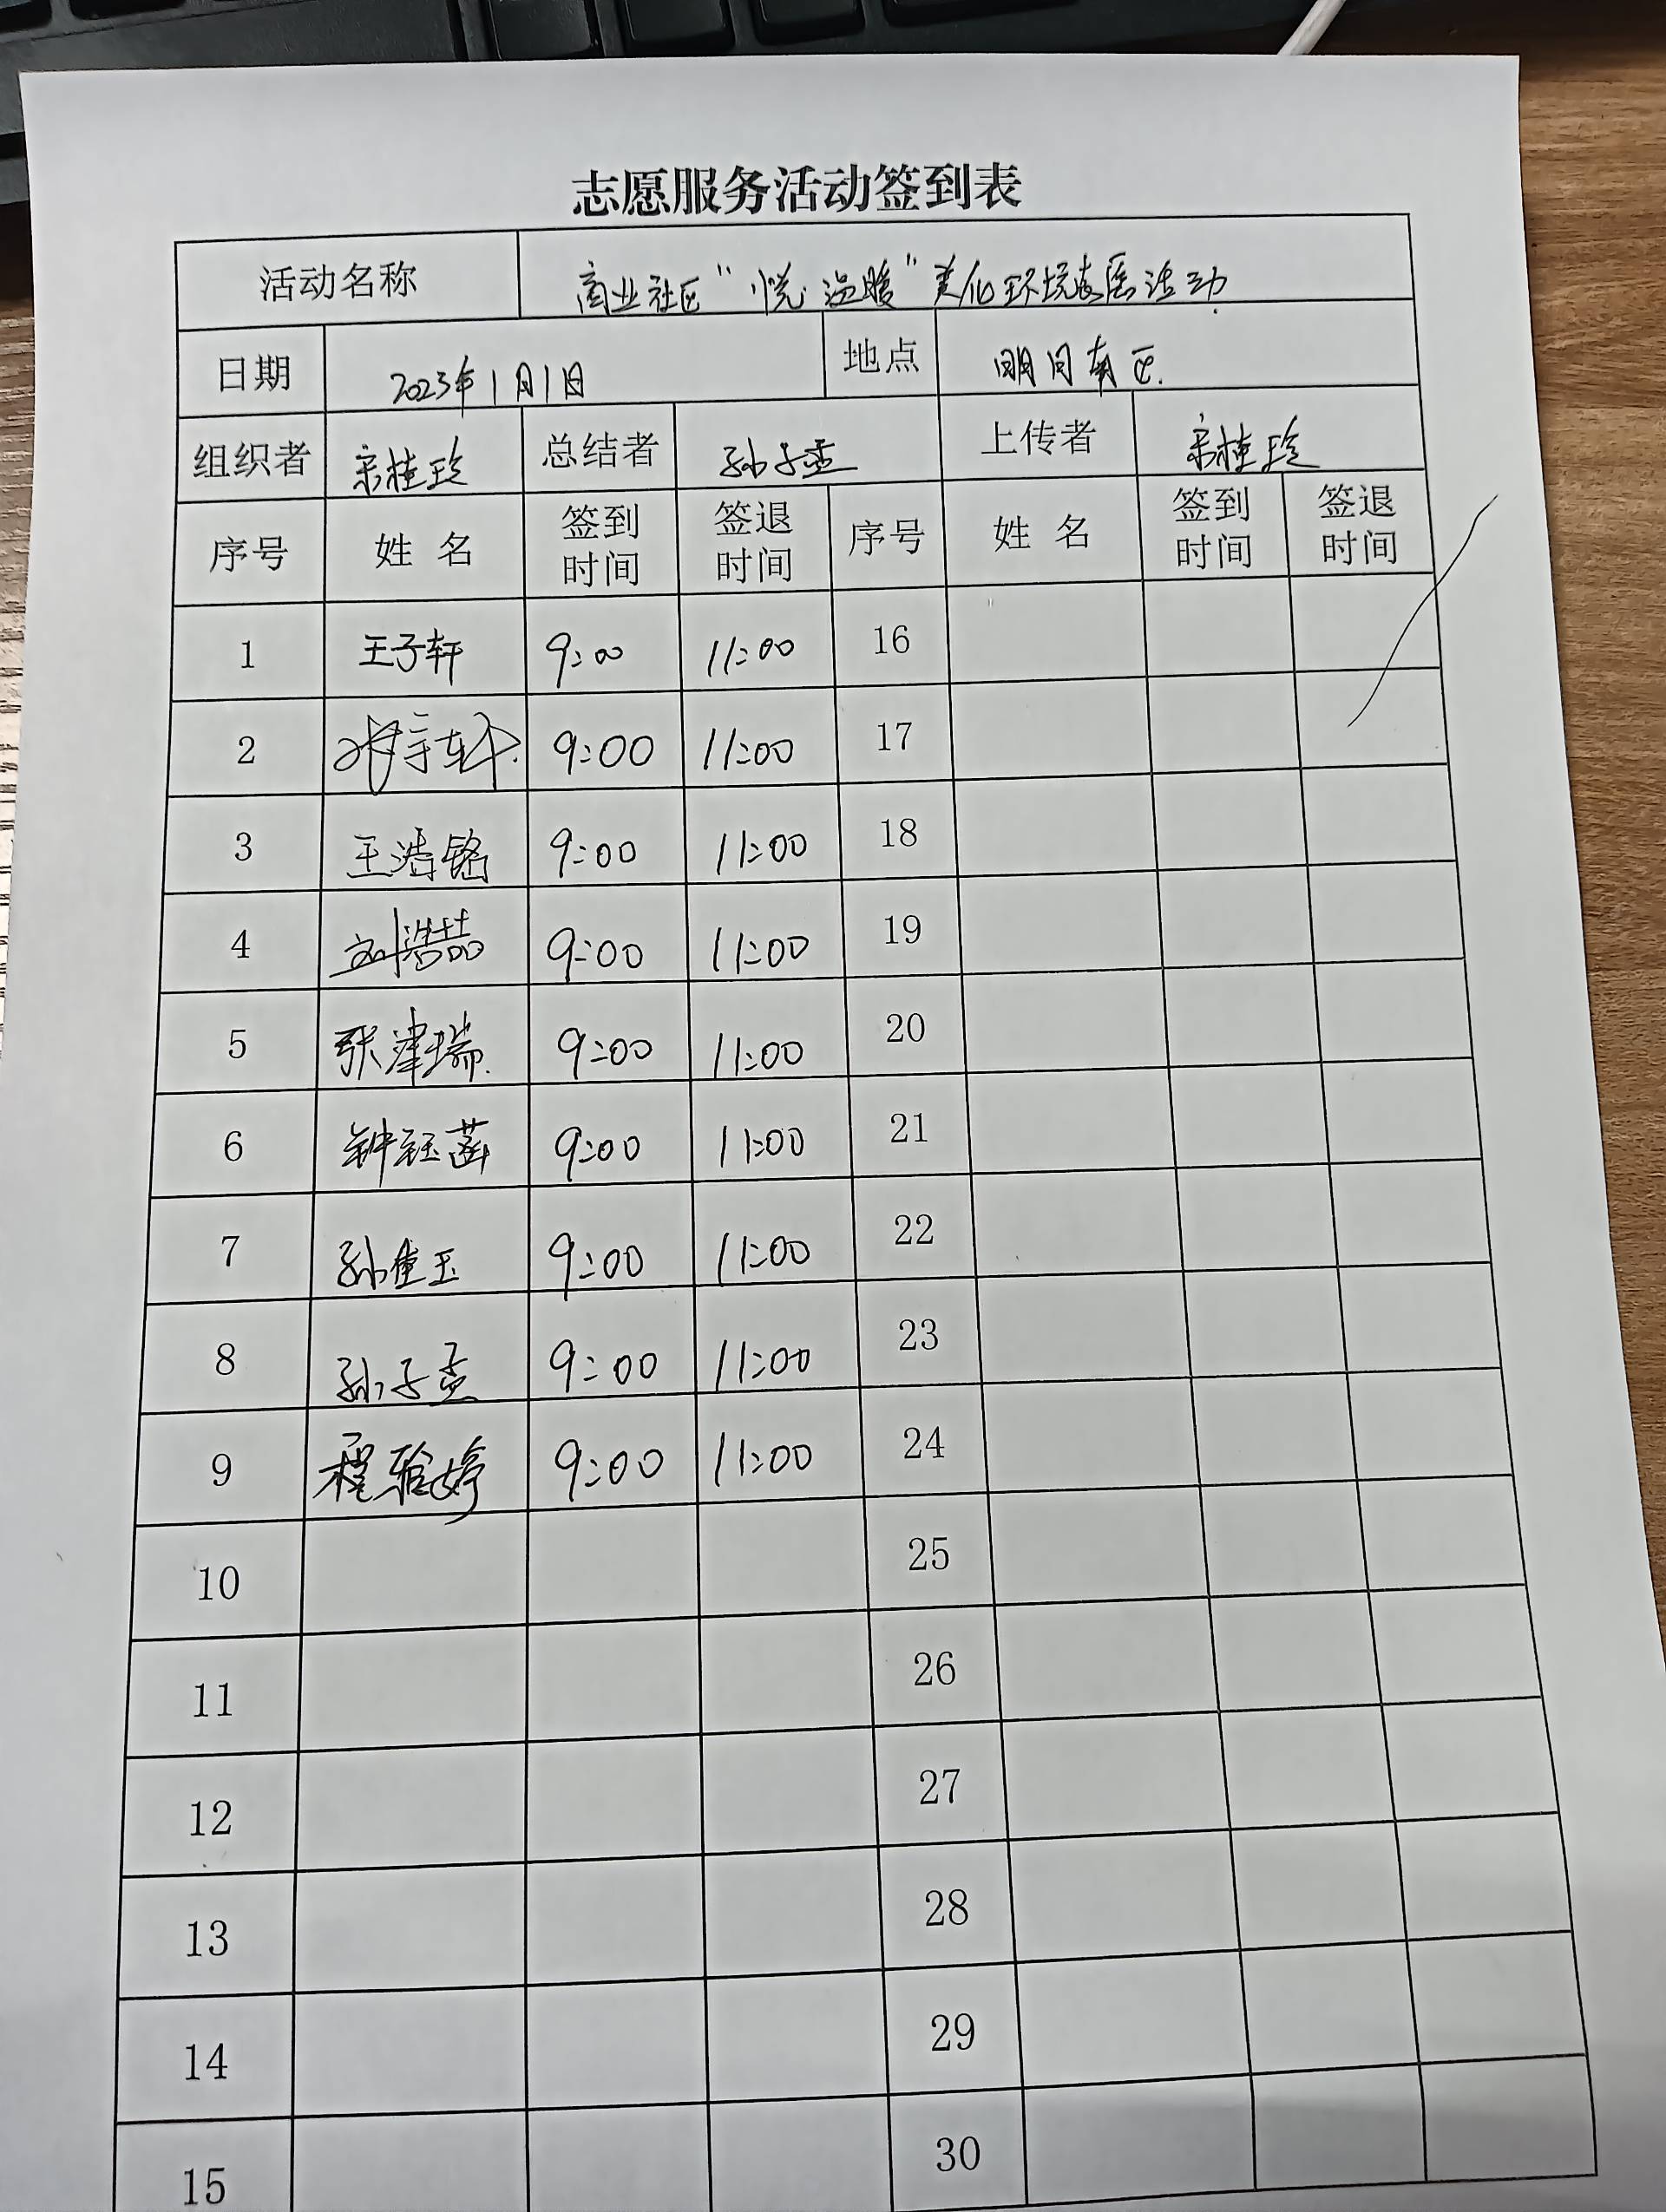 志愿服务活动签到表
活动名称 商业社区“悦·温暖”美化环境志愿活动
日期 2023年1月1日 地点 明月南区.
组织者 宋桂玲 总结者 孙子孟 上传者 宋桂玲
序号 姓 名 签到时间 签退时间 序号 姓 名 签到时间 签退时间
1 王子轩 9:00 11:00 16
2 9:00 11:00 17
3 王浩铭 9:00 11:00 18
4 刘浩喆 9:00 11:00 19
5 张津瑞. 9:00 11:00 20
6 钟钰菡 9:00 11:00 21
7 孙佳玉 9:00 11:00 22
8 孙子孟 9:00 11:00 23
9 程婷 9:00 11:00 24
10 25
11 26
12 27
13 28
14 29
15 30